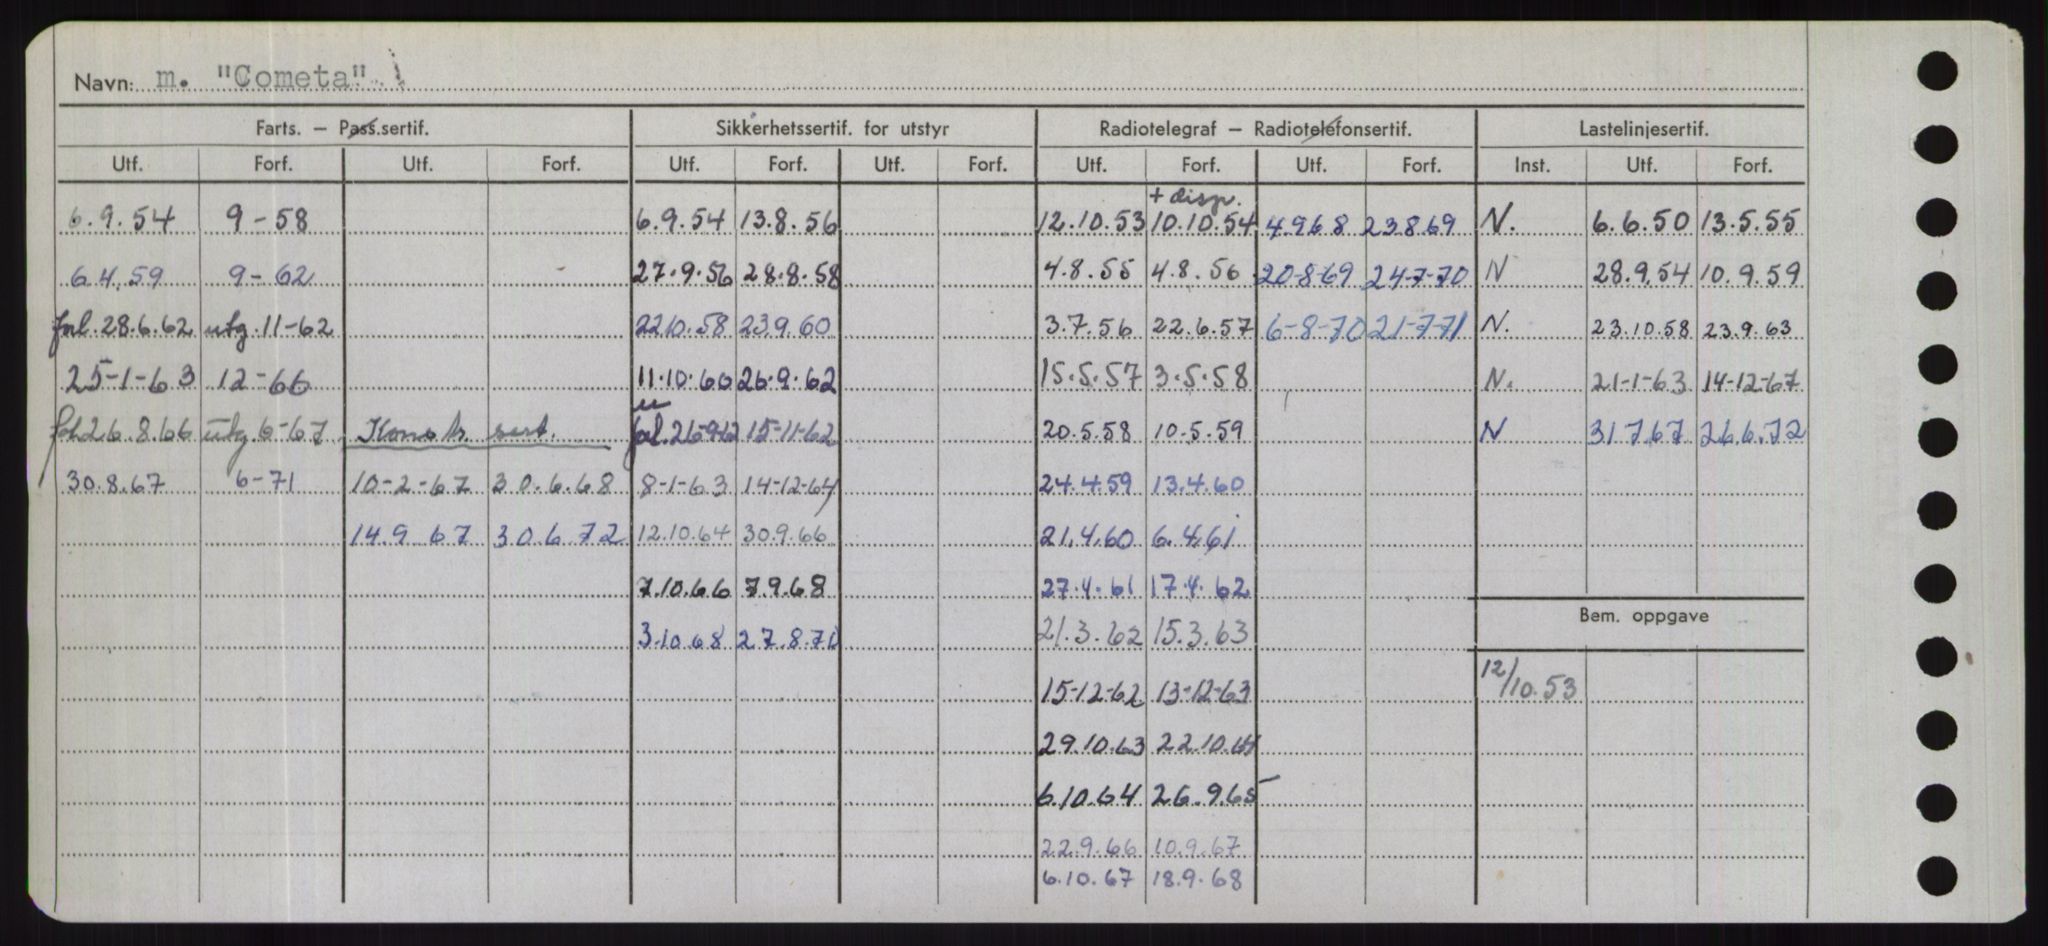 Navn: m. "Cometa"
Farts. – Pass.sertif. Sikkerhetssertif. for utstyr Radiotelegraf – Radiotelefonsertif. Lastelinjesertif.
Utf. Forf. Utf. Forf. Utf. Forf. Utf. Forf. Utf. Forf. Utf. Forf. Inst. Utf. Forf.
+ disp.
6.9.54 9-58 6.9.54 13.8.56 12.10.53 10.10.54 4968 23869 N. 6.6.50 13.5.55
6.4.59 9-62 27.9.56 28.8.58 4.8.55 4.8.56 20-8-69 24-7-70 N 28.9.54 10.9.59
fal.28.6.62 utg.11-62 22.10.58 23.9.60 3.7.56 22.6.57 6-8-70 21-7-71 N. 23.10.58 23.9.63
25-1-63 12-66 11.10.60 26.9.62 15.5.57 3.5.58 N. 21-1-63 14-12-67
26.8.66 utg 6-67 Konstr. sert. fal.26-9-62 15-11-62 20.5.58 10.5.59 N 31.7.67 26.6.72
30.8.67 6-71 10-2-67 30.6.68 8-1-63 14-12-64 24.4.59 13.4.60
14.9 67 30.6 72 12.10.64 30.9.66 21.4.60 6.4.61
7.10.66 7.9.68 27.4.61 17.4.62
Bem. oppgave
3.10.68 27.8.70 21.3.62 15.3.63
15-12-62 13-12-63 12/10.53
29.10.63 22.10.64
6.10.64 26.9.65
22.9.66 10.9.67
6.10.67 18.9.68